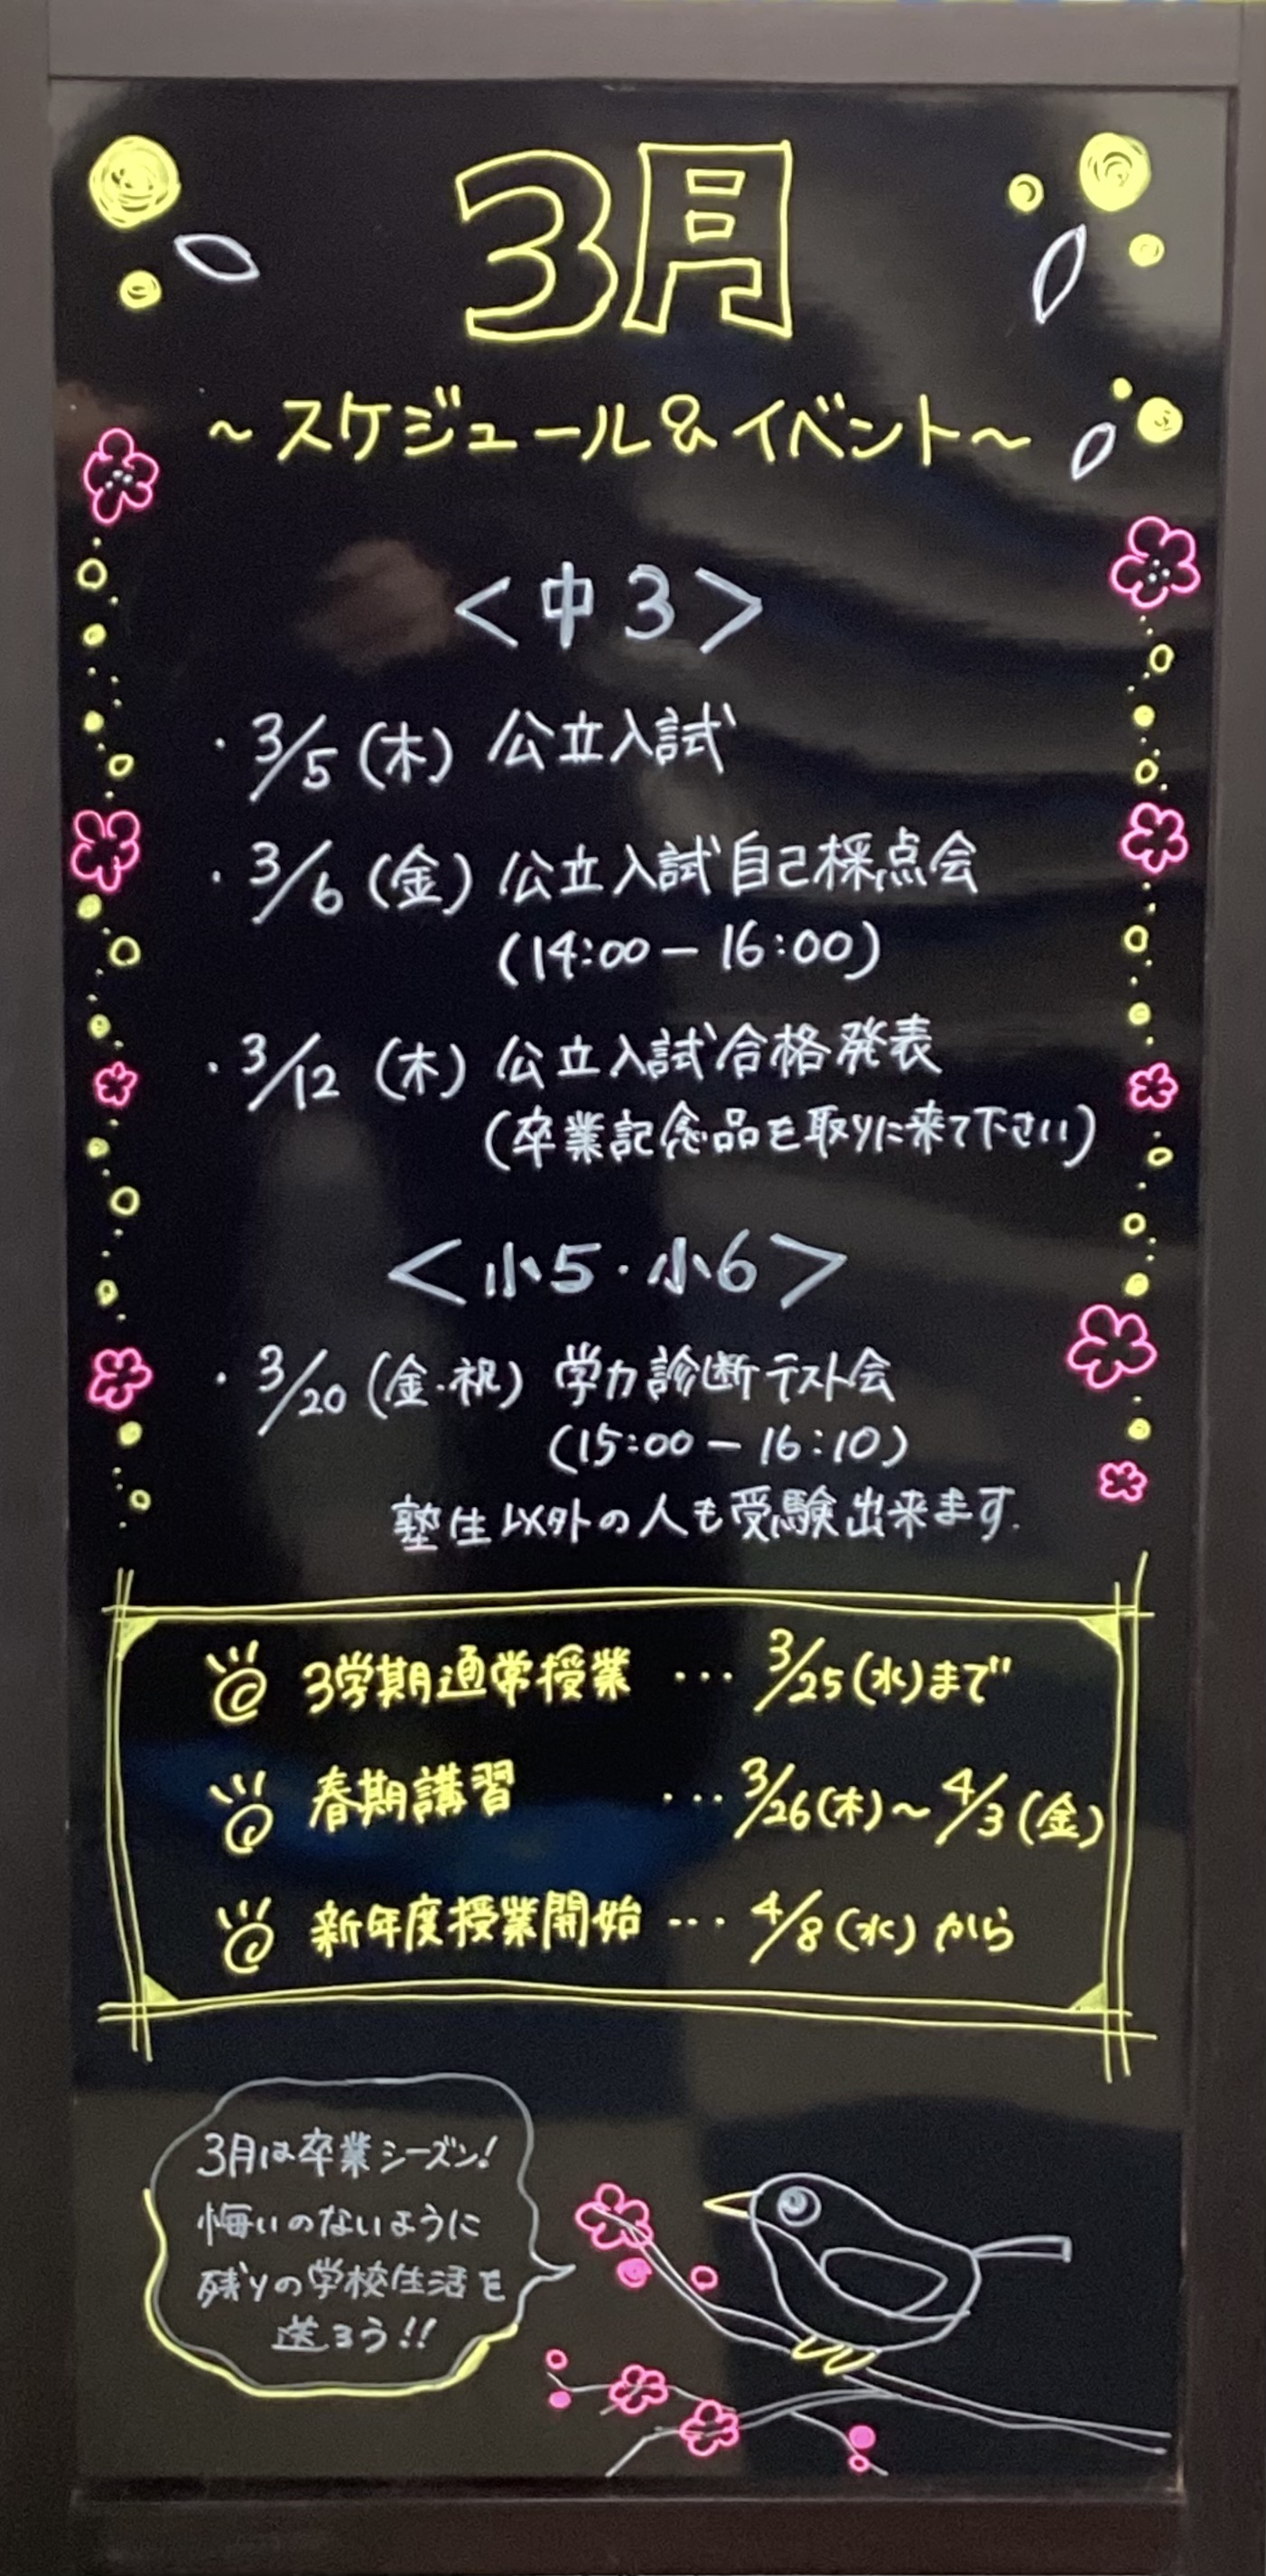 3月
~スケジュール&イベント~
<中3>
・3/5(木) 公立入試
・3/6(金) 公立入試自己採点会
(14:00-16:00)
・3/12(木) 公立入試合格発表
(卒業記念品を取りに来て下さい)
<小5・小6>
・3/20(金・祝) 学力診断テスト会
(15:00-16:10)
塾生以外の人も受験出来ます.
3学期通常授業 ・・・ 3/25(水)まで
春期講習 ・・・ 3/26(木)~4/3(金)
新年度授業開始 ・・・ 4/8(水)から
3月は卒業シーズン!
悔いのないように
残りの学校生活を
送ろう!!